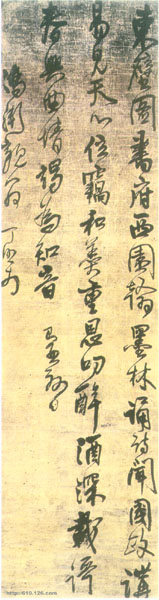 東壁圖書府西園翰墨林誦詩聞國政講
易見天心位竊和羹重恩叨醉酒深載
春興曲情竭為知音
http://610.126.com